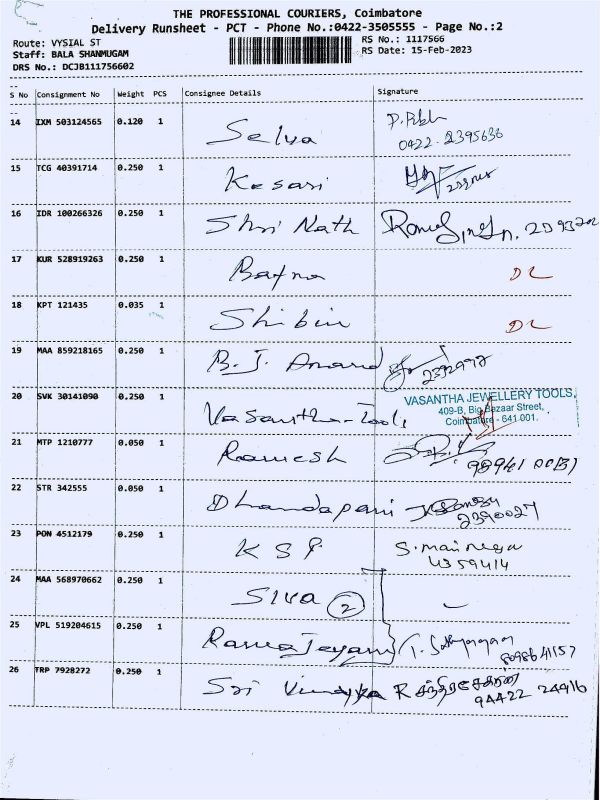 THE PROFESSIONAL COURIERS, Coimbatore
Delivery Runsheet - PCT - Phone No.:0422-3505555 - Page No.:2
Route: VYSIAL ST
RS No.: 1117566
Staff: BALA SHANMUGAM
RS Date: 15-Feb-2023
DRS No.: DCJB111756602
S No Consignment No Weight PCS Consignee Details Signature
14 IXM 503124565 0.120 1 Selva
0422-2395636
15 TCG 40391714 0.250 1 Kesari
16 IDR 100266326 0.250 1 Shri Nath
17 KUR 528919263 0.250 1 Bafna DL
18 KPT 121435 0.035 1 Shibin DL
19 MAA 859218165 0.250 1 B.J. Anand
20 SVK 30141090 0.250 1 Vasantha-Tools
VASANTHA JEWELLERY TOOLS,
409-B, Big Bazaar Street,
Coimbatore - 641 001.
21 MTP 1210777 0.050 1 Ramesh
22 STR 342555 0.050 1 Dhandapani
2390027
23 PON 4512179 0.250 1 KSP
4359414
24 MAA 568970662 0.250 1 Siva 2
25 VPL 519204615 0.250 1 Rama Jeyam
8098641157
26 TRP 7928272 0.250 1 Sri Vinayka R சந்திரசேகரன்
94422 24916